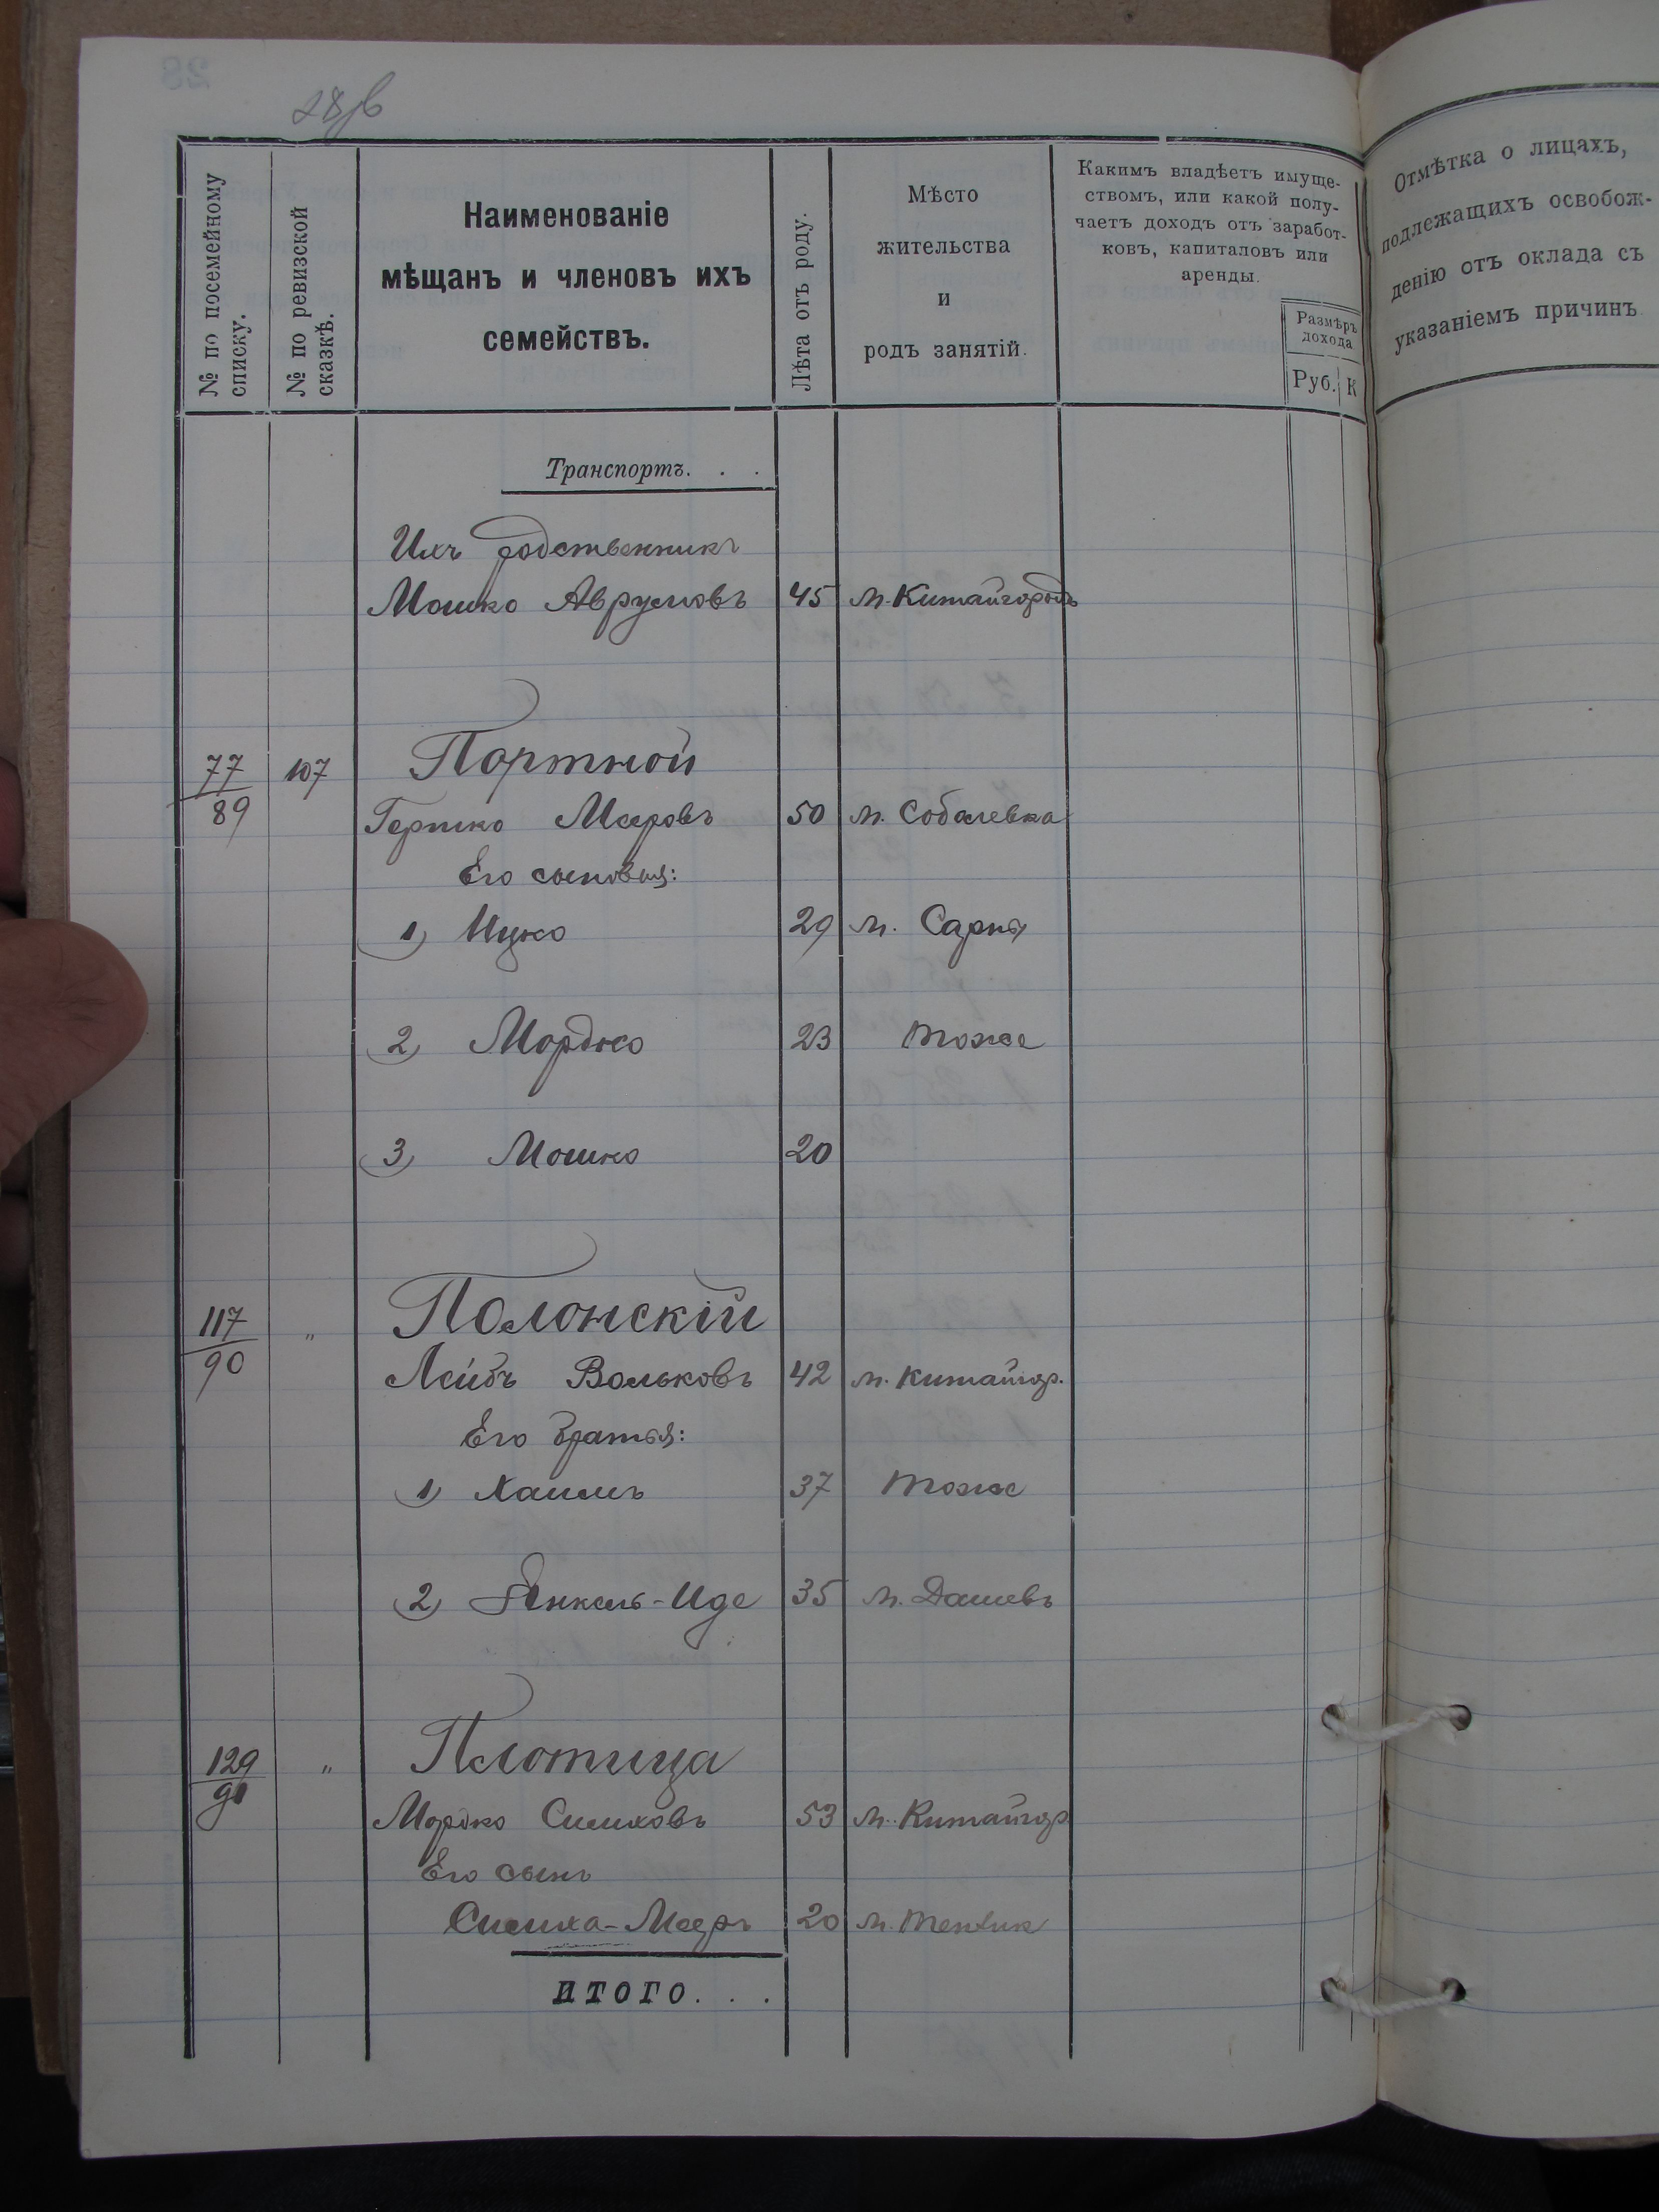 28
28зв
№ по посемейному
списку.
№ по ревизской
сказкѣ.
Наименованіе
мѣщанъ и членовъ ихъ
семействъ.
Лѣта отъ роду.
Мѣсто
жительства
и
родъ занятій.
Какимъ владѣетъ имуще-
ствомъ, или какой полу-
чаетъ доходъ отъ заработ-
ковъ, капиталовъ или
аренды.
Размѣръ
дохода
Руб. К
Отмѣтка о лицахъ,
подлежащихъ освобож-
денію отъ оклада съ
указаніемъ причинъ
Транспортъ. . .
Ихъ родственникъ
Мошко Аврумовъ 45 м. Китайгородъ
77 107 Портной
89 Гершко Мееровъ 50 м. Соболевка
Его сыновья:
1) Ицко 29 м. Сарны
2) Мордко 23 тоже
3) Мошко 20
117 " Полонскій
90 Лейбъ Вольковъ 42 м. Китайгор.
Его братья:
1) Хаимъ 37 тоже
2) Янкель-Иде 35 м. Дашевъ
129 " Плотица
91 Мордко Симховъ 53 м. Китайгор.
Его сынъ
Симха-Мееръ 20 м. Теплик
ИТОГО. . .